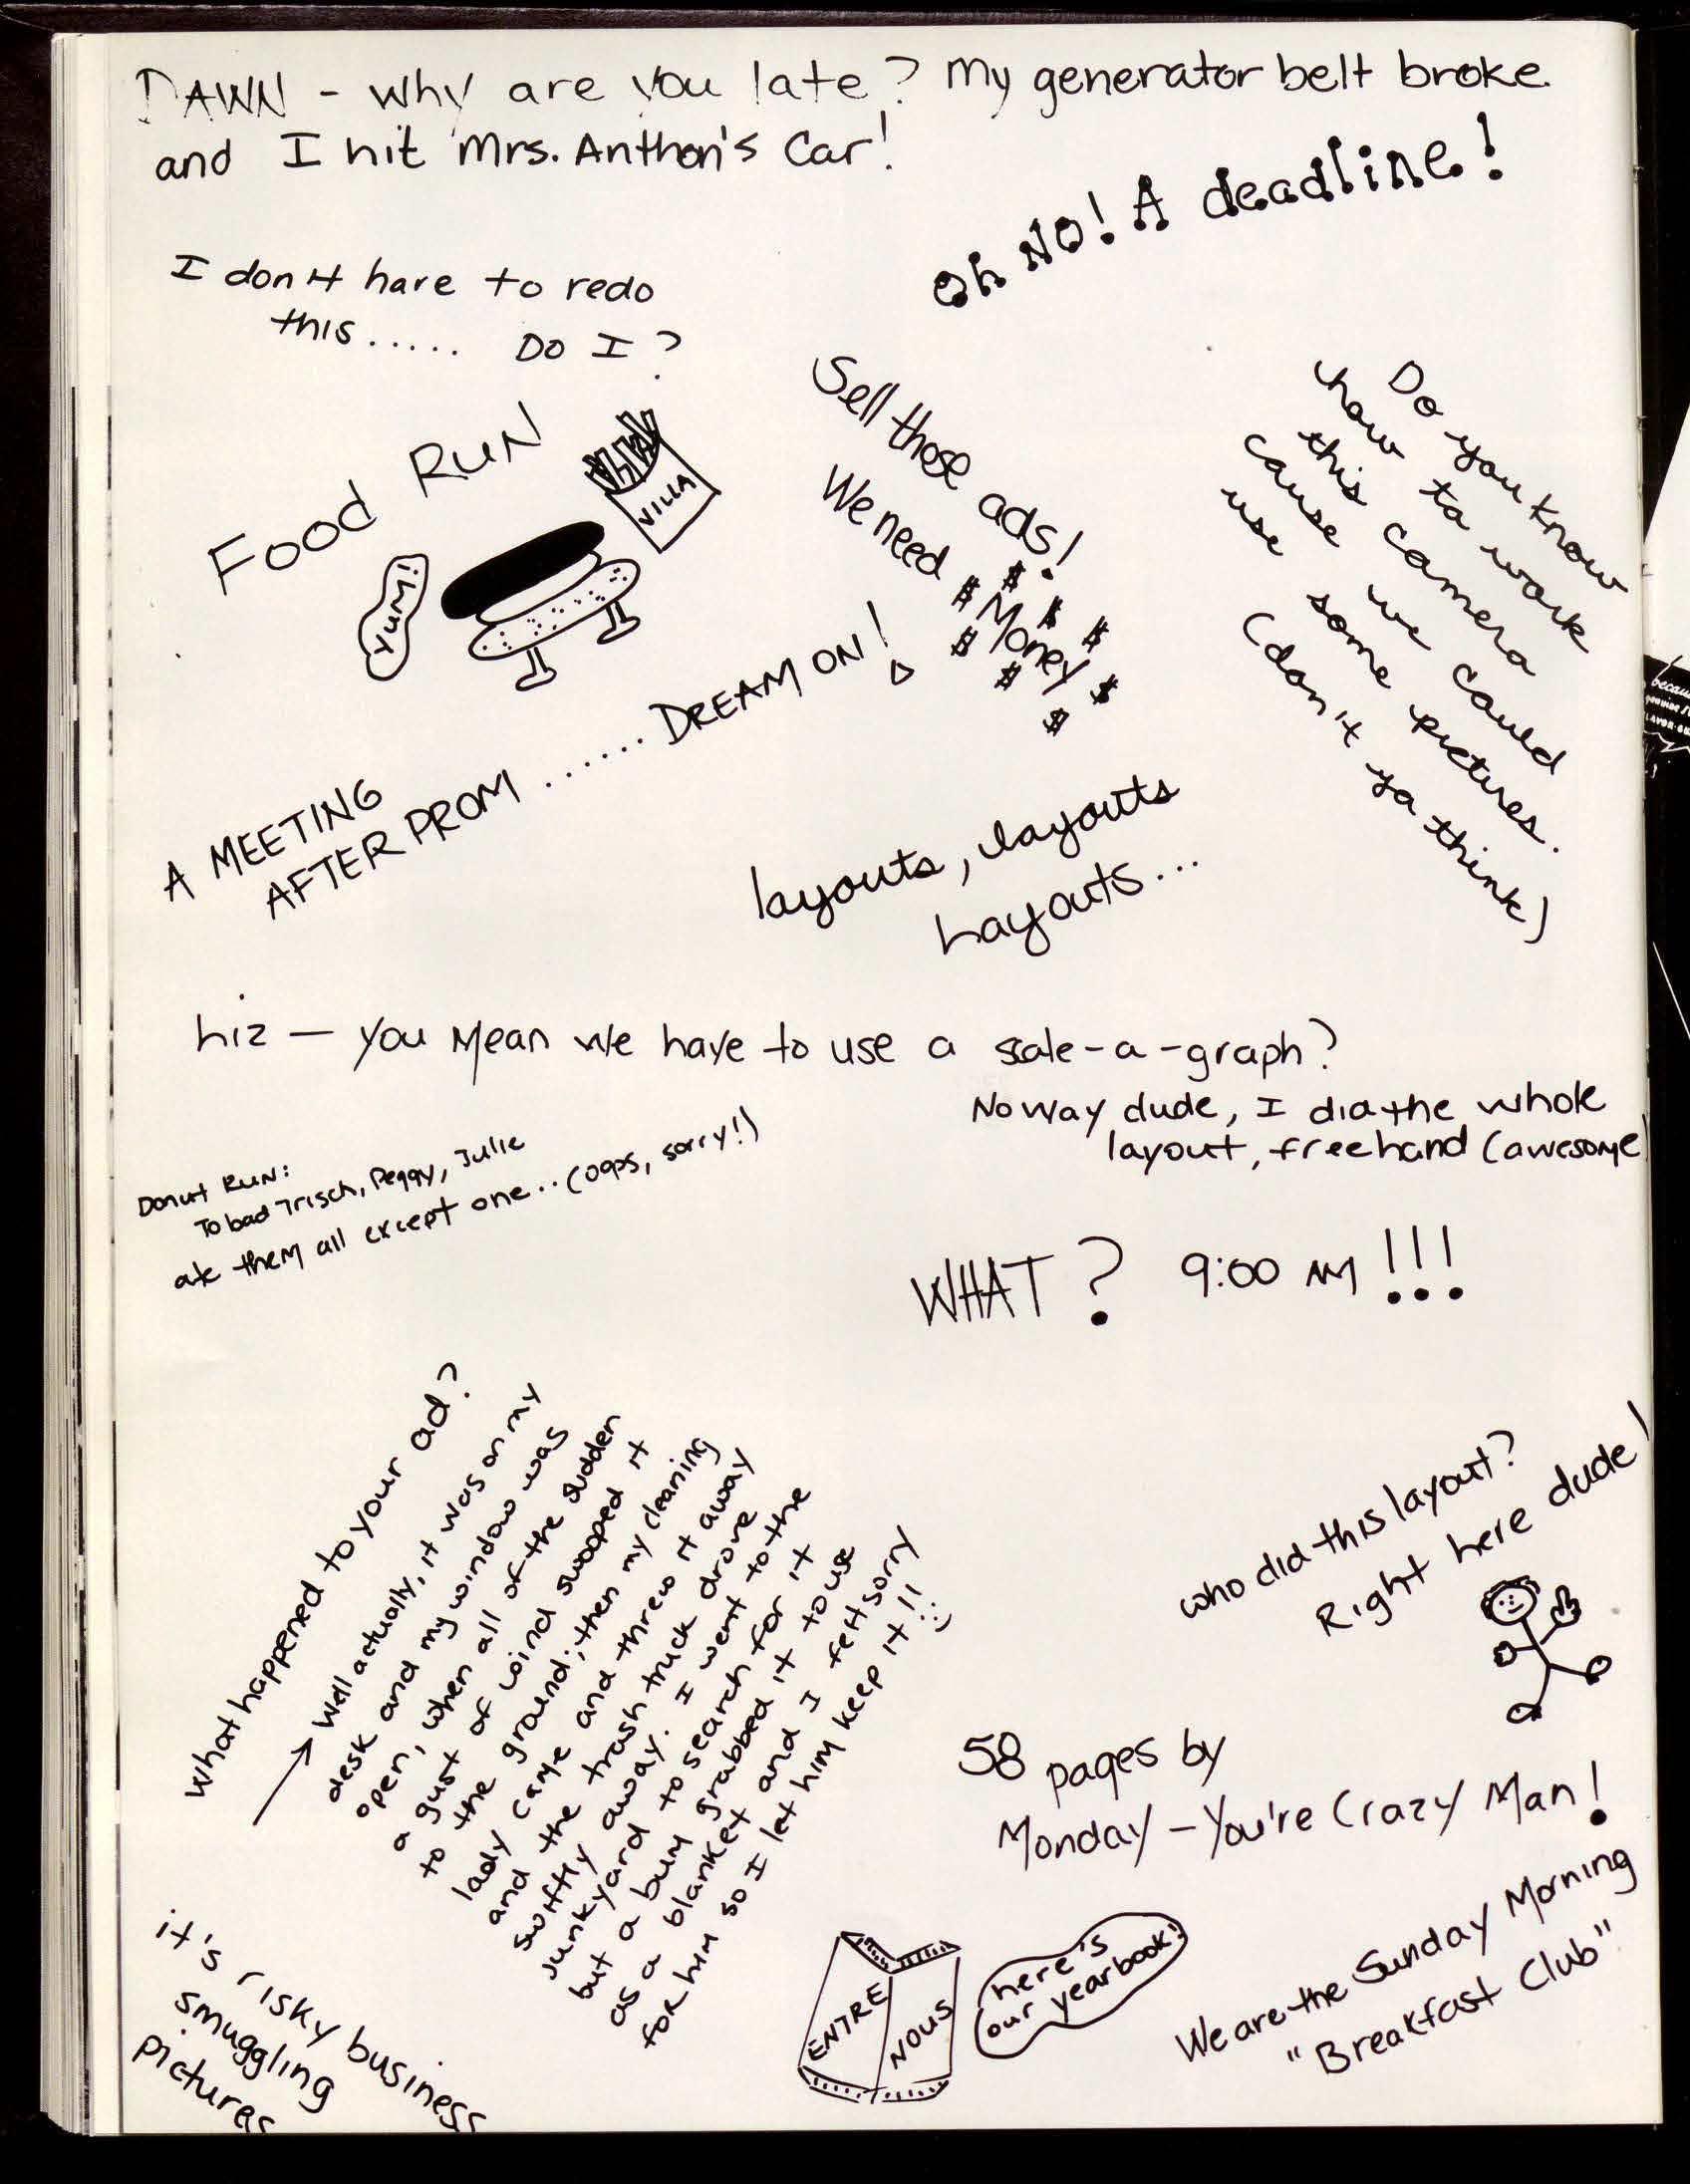 DAWN - why are you late? My generator belt broke
and I hit Mrs. Anthon's Car!
Oh NO! A deadline!
I don't have to redo
this..... Do I?
Food Run
VILLA
YUM!
Sell those ads!
We need
$ $ $ $ Money $ $ $ $
Do you know
how to work
this camera
cause we could
use some pictures.
(don't ya think)
A MEETING
AFTER PROM ...... DREAM ON!
layouts, layouts
Layouts...
Liz — You Mean we have to use a scale-a-graph?
No way dude, I did the whole
layout, freehand (awesome)
Donut Run:
To bad Trisch, Peggy, Julie
ate them all except one..(oops, sorry!)
WHAT? 9:00 AM!!!
What happened to your ad?
→ Well actually, it was on my
desk and my window was
open, when all of the sudden
a gust of wind swooped it
to the ground; then my cleaning
lady came and threw it away
and the trash truck drove
swiftly away. I went to the
junkyard to search for it
but a bum grabbed it to use
as a blanket and I felt sorry
for him so I let him keep it!! :)
who did this layout?
Right here dude!
58 pages by
Monday - You're Crazy Man!
it's risky business
smuggling
pictures
ENTRE
NOUS
here's
our yearbook!
We are the Sunday Morning
"Breakfast Club"